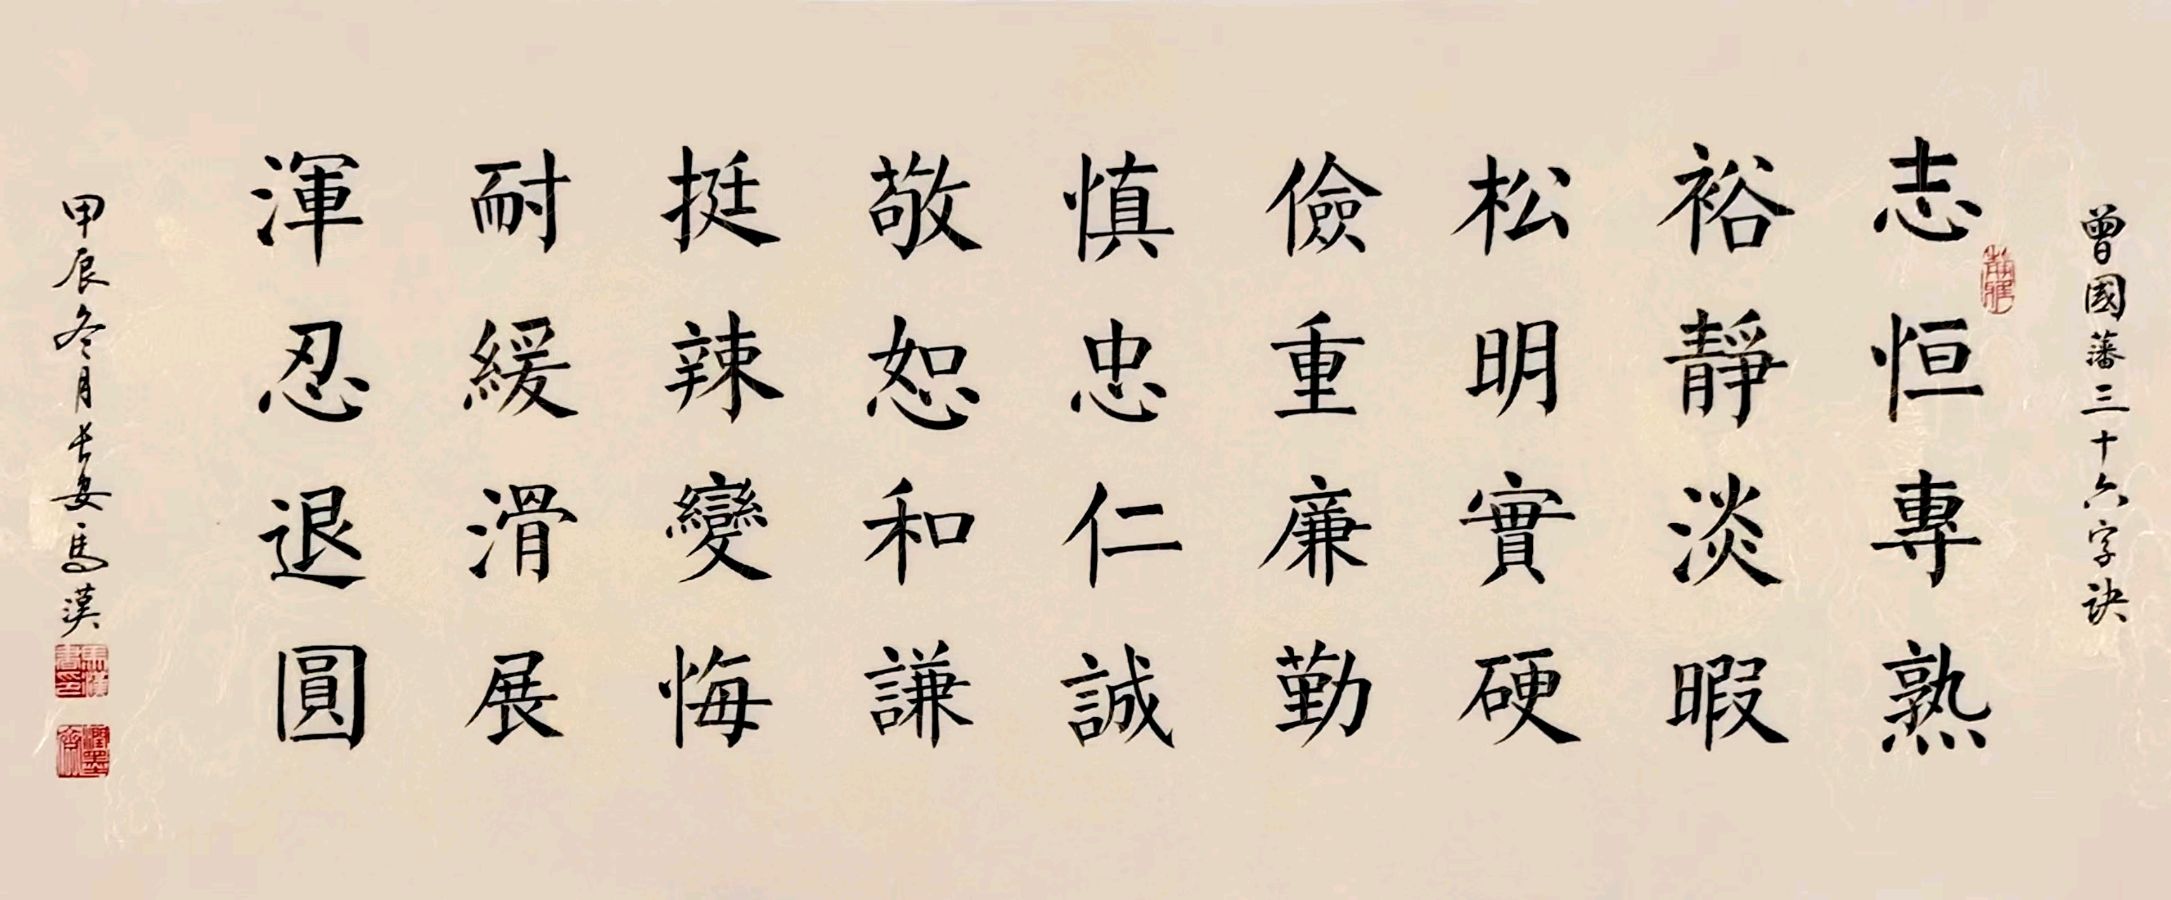 曾國藩三十六字訣
志恒專熟
裕靜淡暇
松明實硬
儉重廉勤
慎忠仁誠
敬恕和謙
挺辣變悔
耐緩滑展
渾忍退圓
甲辰冬月長安馬漢